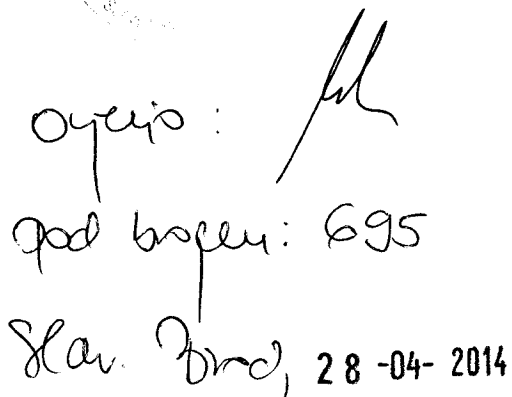 Ovjerio:
pod brojem: 695
Slav. Brod, 28-04-2014